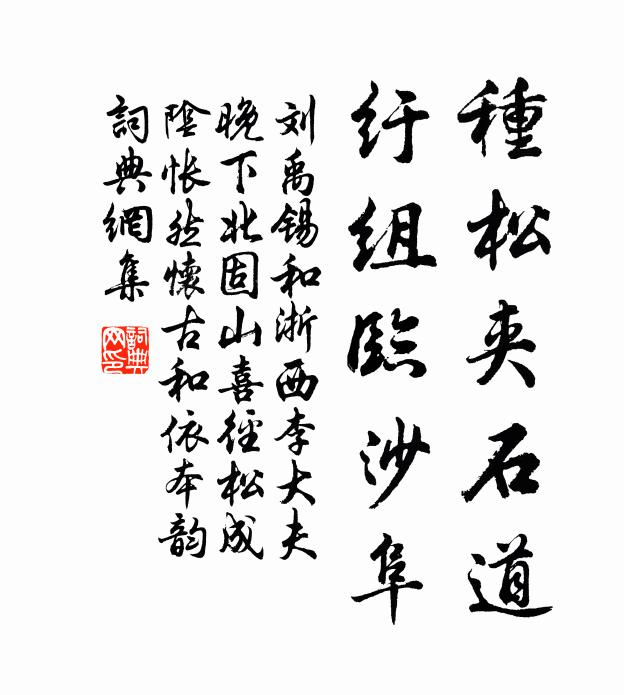 種松夾石道
紆組臨沙阜
刘禹锡和浙西李大夫
晚下北固山喜徑松成
陰悵然懷古和依本韵
詞典網集
詞典
网印